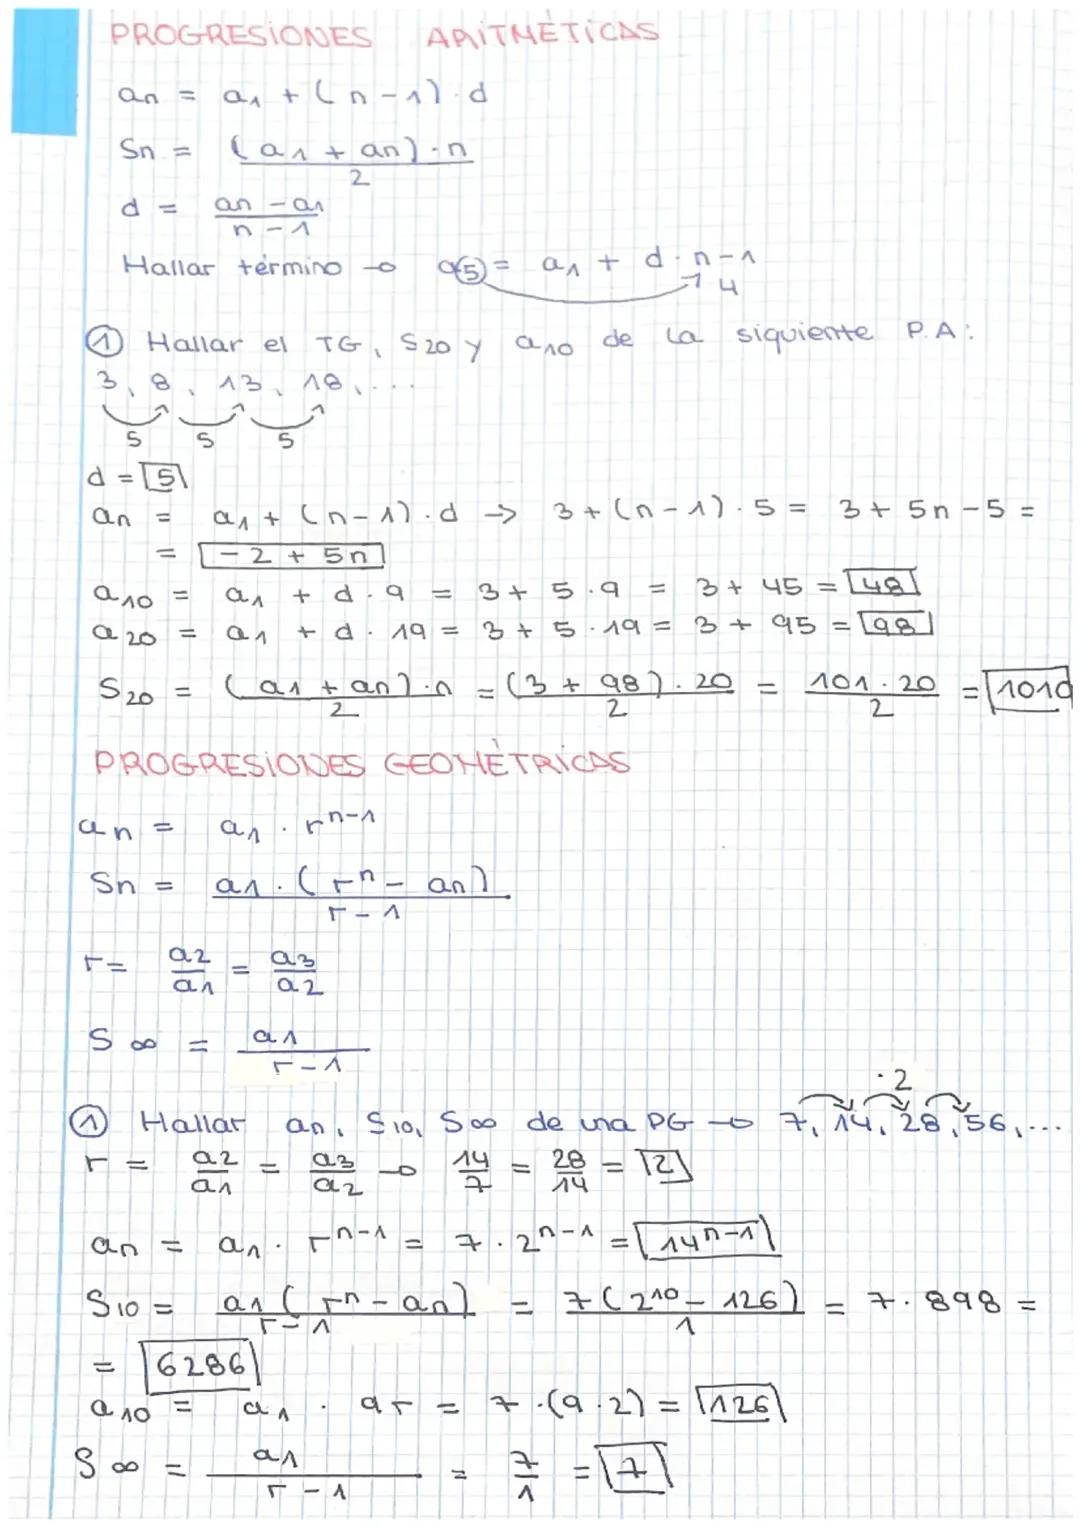 PROGRESIONES ARITMÉTICAS
an = a1 + (n-1)·d
Sn = (a1 + an)·n / 2
d = an - a1 / n - 1
Hallar término → a5 = a1 + d·n-1
4
① Hallar el TG, S20 y a10 de la siquiente P.A:
3, 8, 13, 18, ...
5 5 5
d = 5
an = a1 + (n-1)·d → 3 + (n-1)·5 = 3 + 5n - 5 =
= -2 + 5n
a10 = a1 + d·9 = 3 + 5·9 = 3 + 45 = 48
a20 = a1 + d·19 = 3 + 5·19 = 3 + 95 = 98
S20 = (a1 + an)·n / 2 = (3 + 98)·20 / 2 = 101·20 / 2 = 1010
PROGRESIONES GEOMÉTRICAS
an = a1 · r^n-1
Sn = a1·(r^n - an) / r - 1
r = a2 / a1 = a3 / a2
S∞ = a1 / r - 1
·2
① Hallar an, S10, S∞ de una PG → 7, 14, 28, 56, ...
r = a2 / a1 = a3 / a2 → 14 / 7 = 28 / 14 = 2
an = a1 · r^n-1 = 7 · 2^n-1 = 14^n-1
S10 = a1(r^n - an) / r - 1 = 7(2^10 - 126) / 1 = 7·898 =
= 6286
a10 = a1 · 9r = 7·(9·2) = 126
S∞ = a1 / r - 1 = 7 / 1 = 7